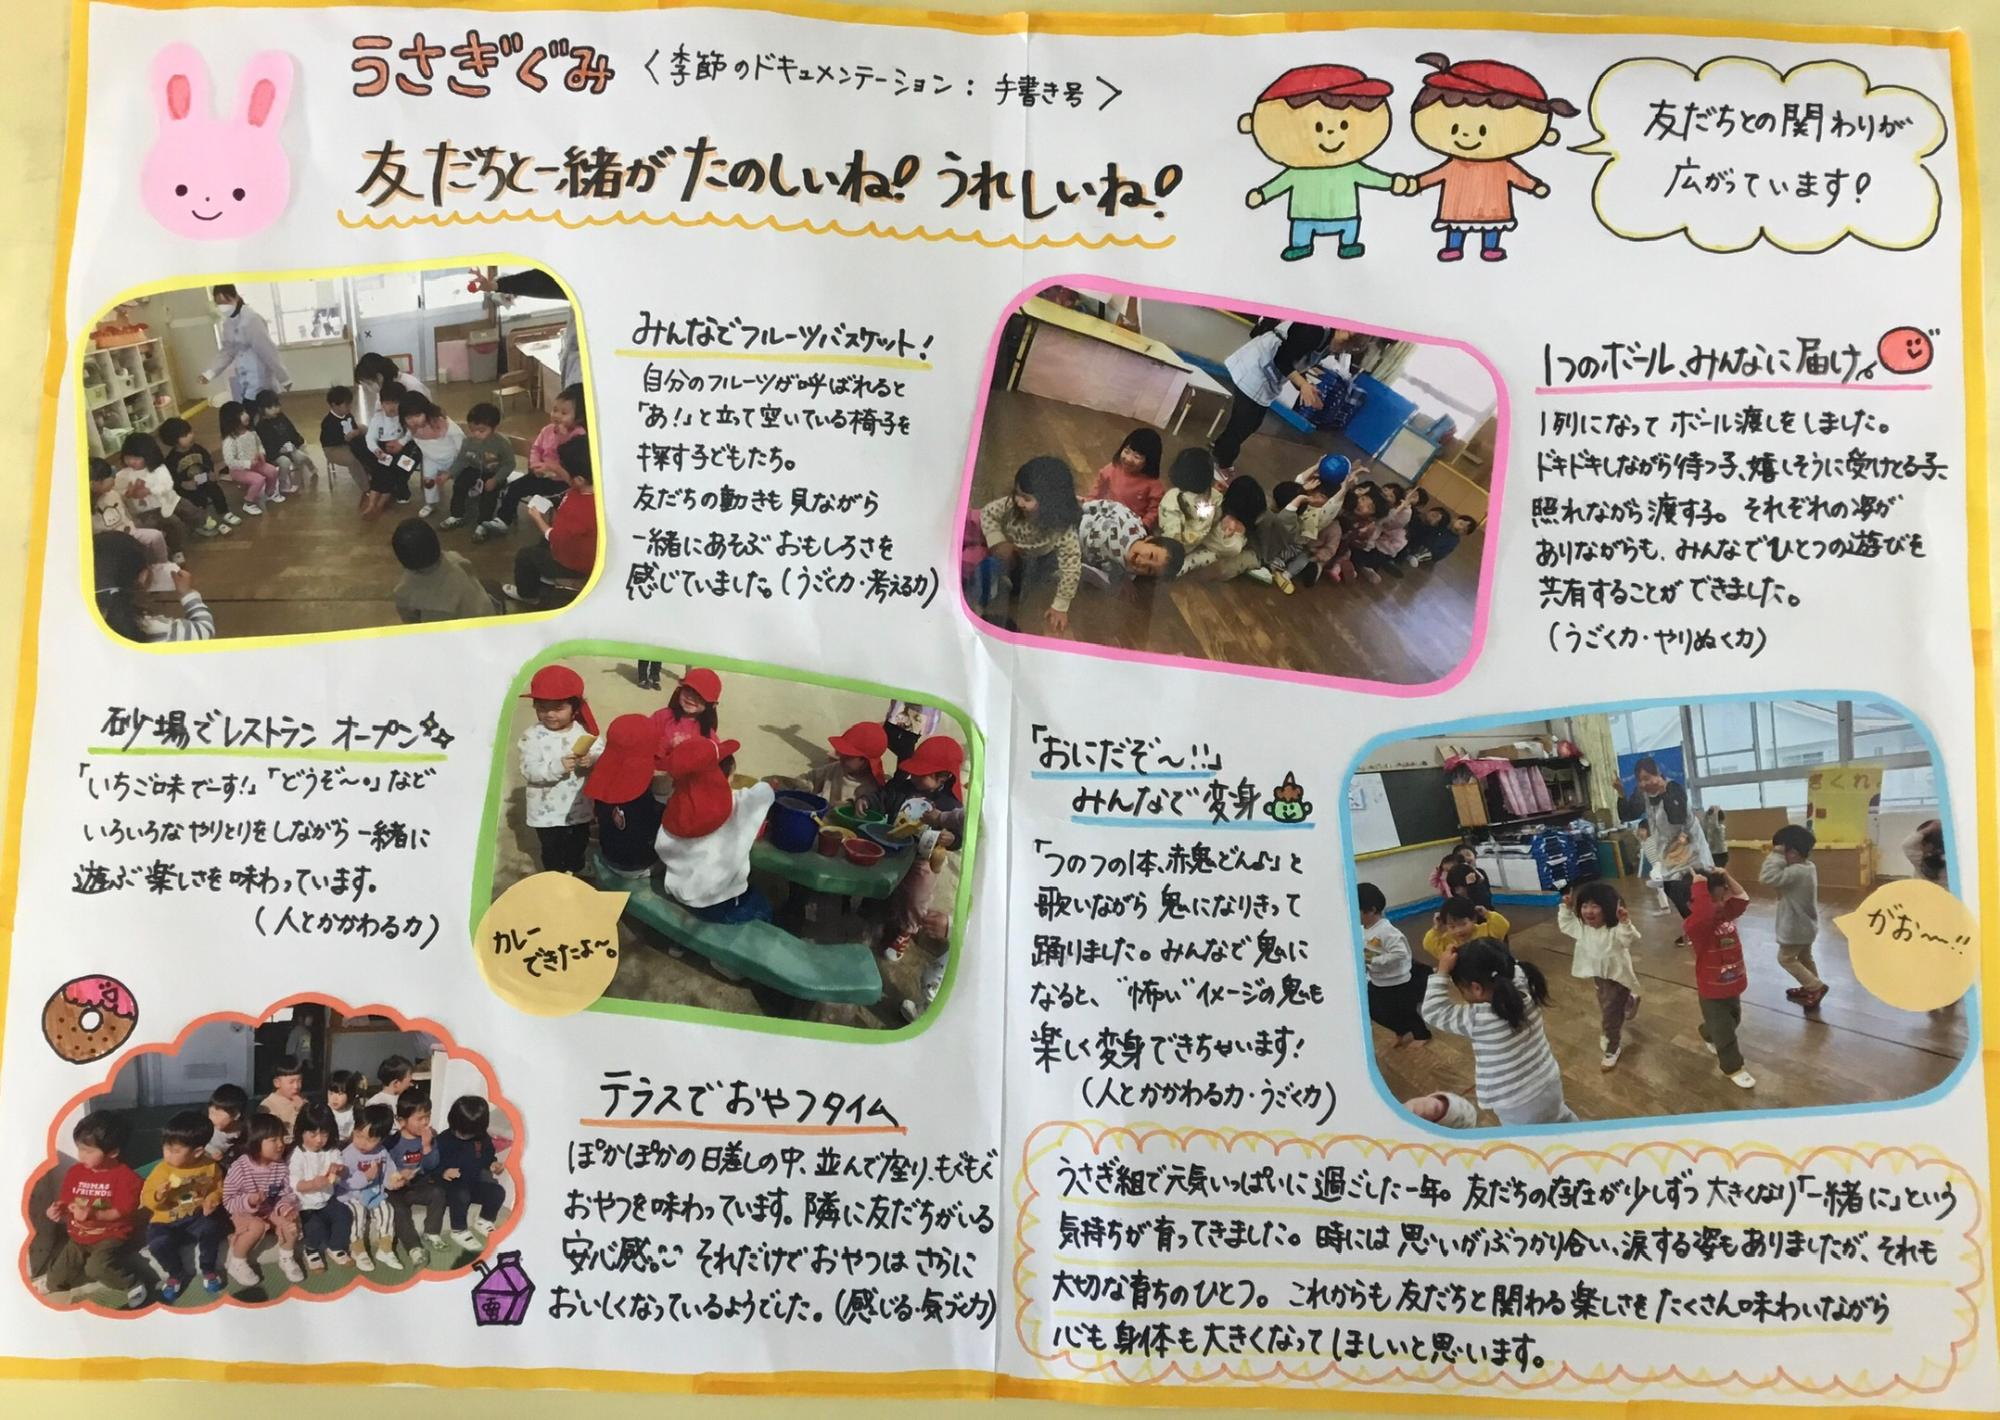 うさぎぐみ 〈季節のドキュメンテーション：手書き号〉
友だちと一緒がたのしいね！うれしいね！
友だちとの関わりが
広がっています！
みんなでフルーツバスケット！
自分のフルーツが呼ばれると
「あ！」と立って空いている椅子を
探す子どもたち。
友だちの動きも見ながら
一緒にあそぶおもしろさを
感じていました。（うごく力・考える力）
1つのボール、みんなに届け。
1列になってボール渡しをしました。
ドキドキしながら待つ子、嬉しそうに受けとる子、
照れながら渡す子。それぞれの姿が
ありながらも、みんなでひとつの遊びを
共有することができました。
（うごく力・やりぬく力）
砂場でレストラン オープン
「いちご味でーす！」「どうぞ〜。」など
いろいろなやりとりをしながら一緒に
遊ぶ楽しさを味わっています。
（人とかかわる力）
カレー
できたよ〜。
「おにだぞ〜!!」
みんなで変身
「つのつの1本、赤鬼どん♪」と
歌いながら鬼になりきって
踊りました。みんなで鬼に
なると、“怖い”イメージの鬼も
楽しく変身できちゃいます！
（人とかかわる力・うごく力）
さくれ
がお〜!!
THOMAS
&FRIENDS
テラスでおやつタイム
ぽかぽかの日差しの中、並んで座り、もぐもぐ
おやつを味わっています。隣に友だちがいる
安心感。それだけでおやつはさらに
おいしくなっているようでした。（感じる・気づく力）
うさぎ組で元気いっぱいに過ごした一年。友だちの存在が少しずつ大きくなり「一緒に」という
気持ちが育ってきました。時には思いがぶつかり合い、涙する姿もありましたが、それも
大切な育ちのひとつ。これからも友だちと関わる楽しさをたくさん味わいながら
心も身体も大きくなってほしいと思います。